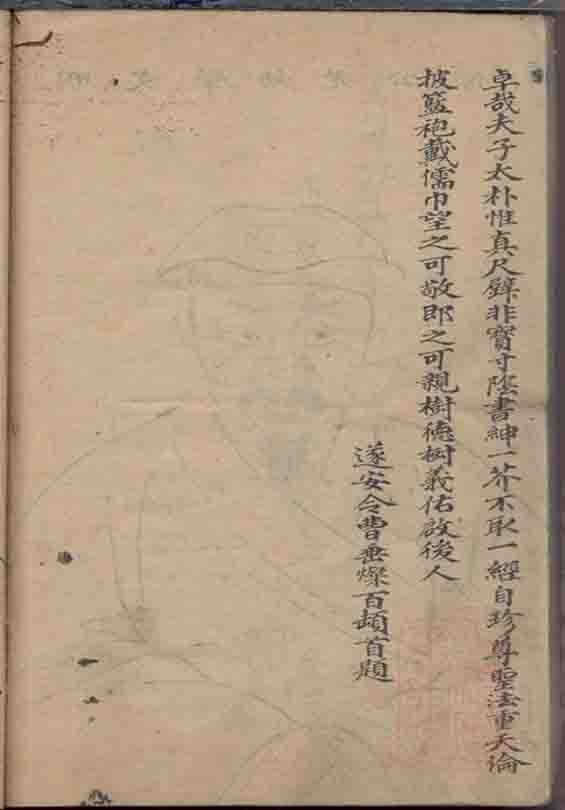 卓哉夫子太朴惟真尺璧非寳寸隂書紳一芥不取一經自珍尊聖法重天倫
披籃袍戴儒巾望之可敬即之可親樹德树義佑啟後人
遂安令曹垂燦百頓首題